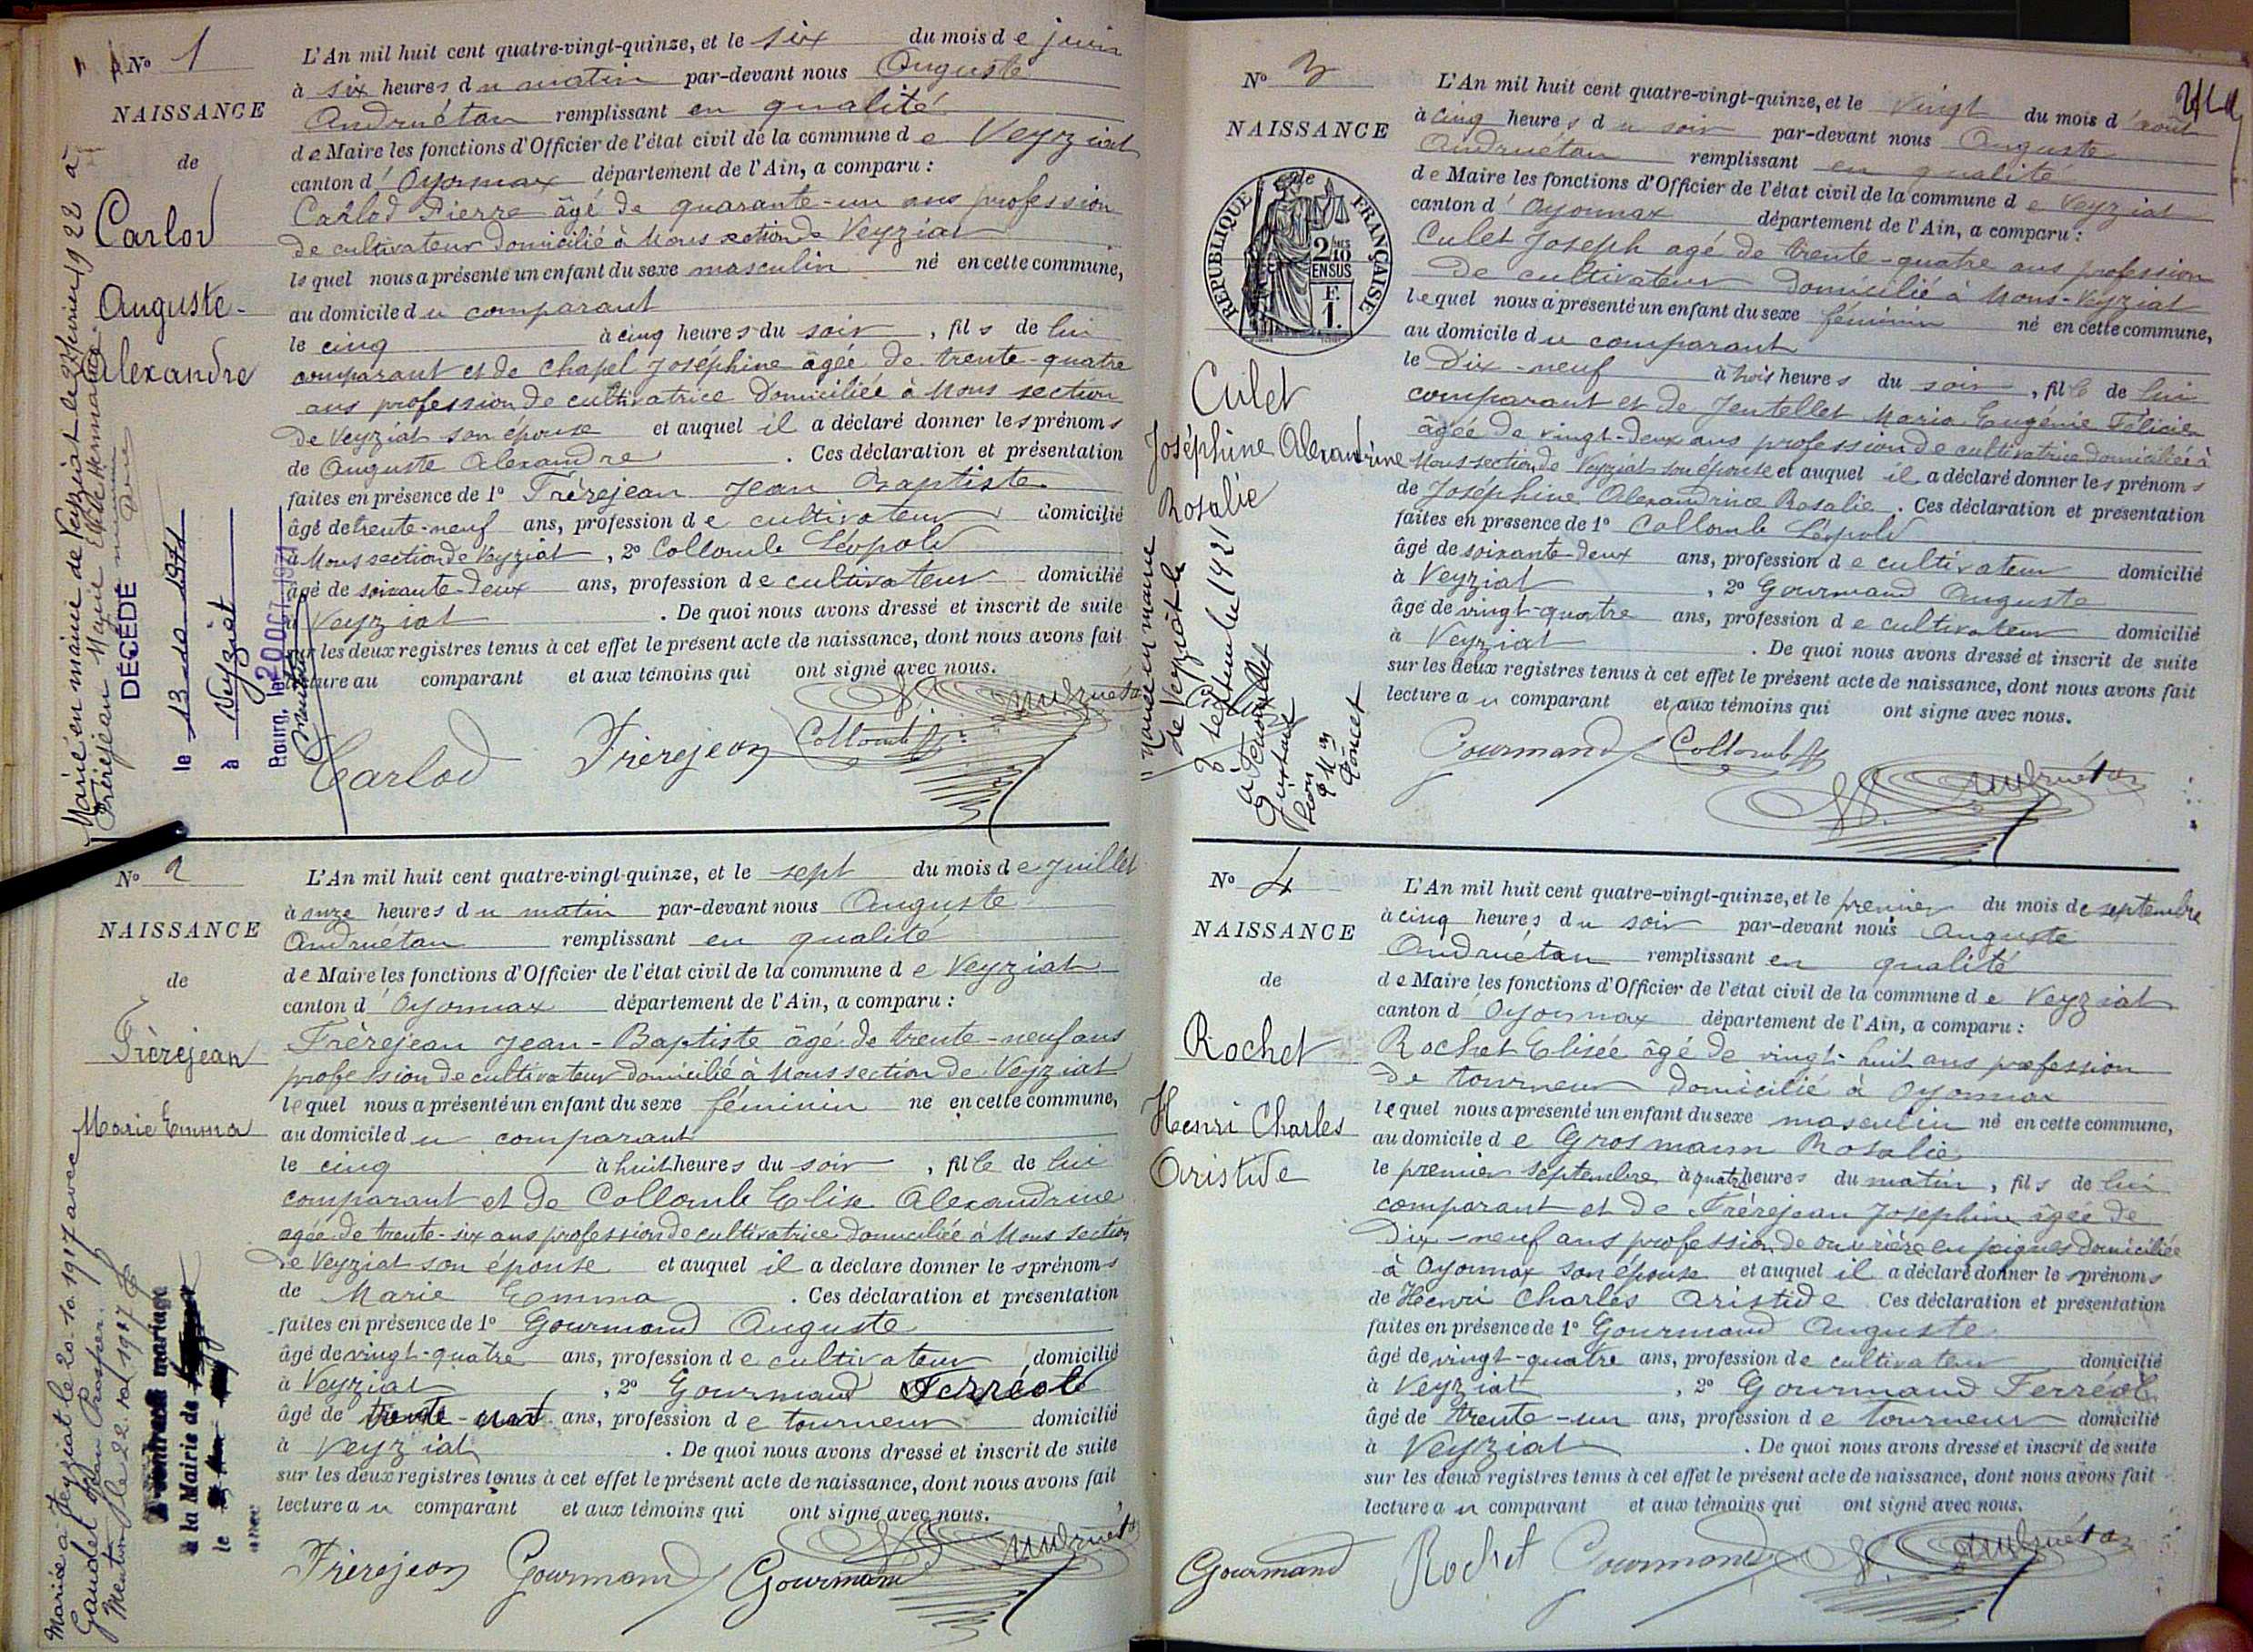 N° 1
NAISSANCE
de
Carlod
Auguste-
Alexandre
Marié en mairie de Veyziat le 1922 à
Frèrejean Marie
DÉCÉDÉ
le 13 1971
à Veyziat
Bourg, le 20 OCT 1971
L'An mil huit cent quatre-vingt-quinze, et le six du mois de juin
à six heures du matin par-devant nous Auguste
Andruétan remplissant en qualité
de Maire les fonctions d'Officier de l'état civil de la commune de Veyziat
canton d'Oyonnax département de l'Ain, a comparu :
Carlod Pierre âgé de quarante-un ans profession
de cultivateur domicilié à Mons section de Veyziat
lequel nous a présenté un enfant du sexe masculin né en cette commune,
au domicile du comparant
le cinq à cinq heures du soir, fils de lui
comparant et de Chapel Joséphine âgée de trente-quatre
ans profession de cultivatrice domiciliée à Mons section
de Veyziat son épouse et auquel il a déclaré donner les prénoms
de Auguste Alexandre. Ces déclaration et présentation
faites en présence de 1° Frèrejean Jean Baptiste
âgé de trente-neuf ans, profession de cultivateur domicilié
à Mons section de Veyziat, 2° Collomb Léopold
âgé de soixante-deux ans, profession de cultivateur domicilié
à Veyziat. De quoi nous avons dressé et inscrit de suite
sur les deux registres tenus à cet effet le présent acte de naissance, dont nous avons fait
lecture au comparant et aux témoins qui ont signé avec nous.
Carlod Frèrejean Collomb Andruétan
N° 2
NAISSANCE
de
Frèrejean
Marie Emma
Mariée à Veyziat le 20.10.1917 avec
Gaudet Prosper.
Mention le 22. 1917
mariage
à la Mairie de
le
avec
L'An mil huit cent quatre-vingt-quinze, et le sept du mois de Juillet
à onze heures du matin par-devant nous Auguste
Andruétan remplissant en qualité
de Maire les fonctions d'Officier de l'état civil de la commune de Veyziat
canton d'Oyonnax département de l'Ain, a comparu :
Frèrejean Jean-Baptiste âgé de trente-neuf ans
profession de cultivateur domicilié à Mons section de Veyziat
lequel nous a présenté un enfant du sexe féminin né en cette commune,
au domicile du comparant
le cinq à huit heures du soir, fille de lui
comparant et de Collomb Elise Alexandrine
agée de trente-six ans profession de cultivatrice domiciliée à Mons section
de Veyziat son épouse et auquel il a déclaré donner les prénoms
de Marie Emma. Ces déclaration et présentation
faites en présence de 1° Gourmand Auguste
âgé de vingt-quatre ans, profession de cultivateur domicilié
à Veyziat, 2° Gourmand Ferréol
âgé de trente-un ans, profession de tourneur domicilié
à Veyziat. De quoi nous avons dressé et inscrit de suite
sur les deux registres tenus à cet effet le présent acte de naissance, dont nous avons fait
lecture au comparant et aux témoins qui ont signé avec nous.
Frèrejean Gourmand Gourmand Andruétan
N° 3
NAISSANCE
de
RÉPUBLIQUE FRANÇAISE
2/10 EN SUS
F. 1.
Culet
Joséphine Alexandrine
Rosalie
Mariée en mairie
de Veyziat le
3 septembre 1921
à
Gustave
Poncet
L'An mil huit cent quatre-vingt-quinze, et le vingt du mois d'août
à cinq heures du soir par-devant nous Auguste
Andruétan remplissant en qualité
de Maire les fonctions d'Officier de l'état civil de la commune de Veyziat
canton d'Oyonnax département de l'Ain, a comparu :
Culet Joseph agé de trente-quatre ans profession
de cultivateur domicilié à Mons-Veyziat
lequel nous a présenté un enfant du sexe féminin né en cette commune,
au domicile du comparant
le Dix-neuf à trois heures du soir, fille de lui
comparant et de Jentellet Marie Eugénie Félicie
âgée de vingt-deux ans profession de cultivatrice domiciliée à
Mons section de Veyziat son épouse et auquel il a déclaré donner les prénoms
de Joséphine Alexandrine Rosalie. Ces déclaration et présentation
faites en présence de 1° Collomb Léopold
âgé de soixante-deux ans, profession de cultivateur domicilié
à Veyziat, 2° Gourmand Auguste
âgé de vingt-quatre ans, profession de cultivateur domicilié
à Veyziat. De quoi nous avons dressé et inscrit de suite
sur les deux registres tenus à cet effet le présent acte de naissance, dont nous avons fait
lecture au comparant et aux témoins qui ont signé avec nous.
Gourmand Collomb Andruétan
N° 4
NAISSANCE
de
Rochet
Henri Charles
Aristide
L'An mil huit cent quatre-vingt-quinze, et le premier du mois de septembre
à cinq heures du soir par-devant nous Auguste
Andruétan remplissant en qualité
de Maire les fonctions d'Officier de l'état civil de la commune de Veyziat
canton d'Oyonnax département de l'Ain, a comparu :
Rochet Elisée âgé de vingt-huit ans profession
de tourneur domicilié à Oyonnax
lequel nous a présenté un enfant du sexe masculin né en cette commune,
au domicile de Grosmann Rosalie
le premier septembre à quatre heures du matin, fils de lui
comparant et de Frèrejean Joséphine âgée de
Dix-neuf ans profession de ouvrière en peignes domiciliée
à Oyonnax son épouse et auquel il a déclaré donner les prénoms
de Henri Charles Aristide. Ces déclaration et présentation
faites en présence de 1° Gourmand Auguste
âgé de vingt-quatre ans, profession de cultivateur domicilié
à Veyziat, 2° Gourmand Ferréol
âgé de trente-un ans, profession de tourneur domicilié
à Veyziat. De quoi nous avons dressé et inscrit de suite
sur les deux registres tenus à cet effet le présent acte de naissance, dont nous avons fait
lecture au comparant et aux témoins qui ont signé avec nous.
Gourmand Rochet Gourmand Andruétan